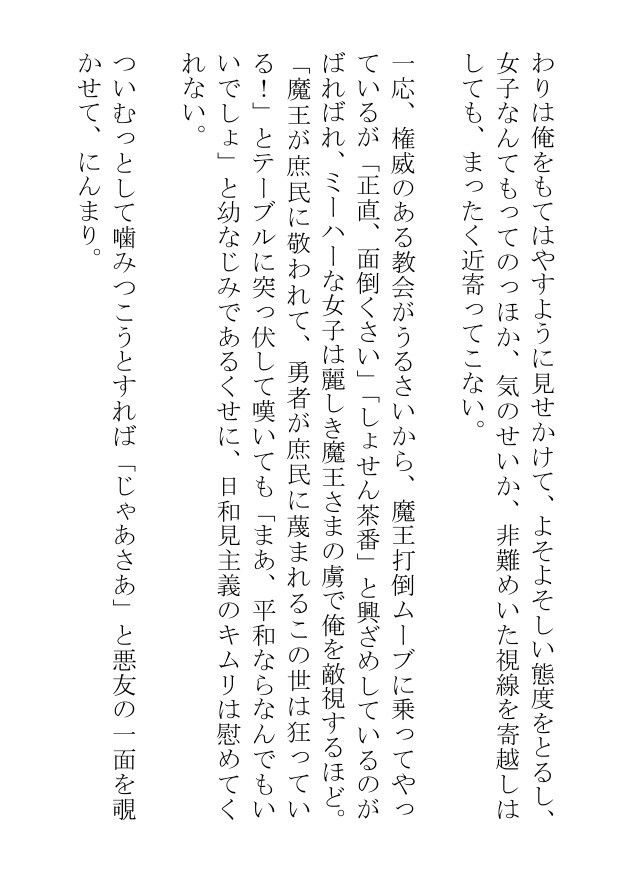 わりは俺をもてはやすように見せかけて、よそよそしい態度をとるし、
女子なんてもってのっほか、気のせいか、非難めいた視線を寄越しは
しても、まったく近寄ってこない。
一応、権威のある教会がうるさいから、魔王打倒ムーブに乗ってやっ
ているが「正直、面倒くさい」「しょせん茶番」と興ざめしているのが
ばればれ、ミーハーな女子は麗しき魔王さまの虜で俺を敵視するほど。
「魔王が庶民に敬われて、勇者が庶民に蔑まれるこの世は狂ってい
る！」とテーブルに突っ伏して嘆いても「まあ、平和ならなんでもい
いでしょ」と幼なじみであるくせに、日和見主義のキムリは慰めてく
れない。
ついむっとして噛みつこうとすれば「じゃあさあ」と悪友の一面を覗
かせて、にんまり。